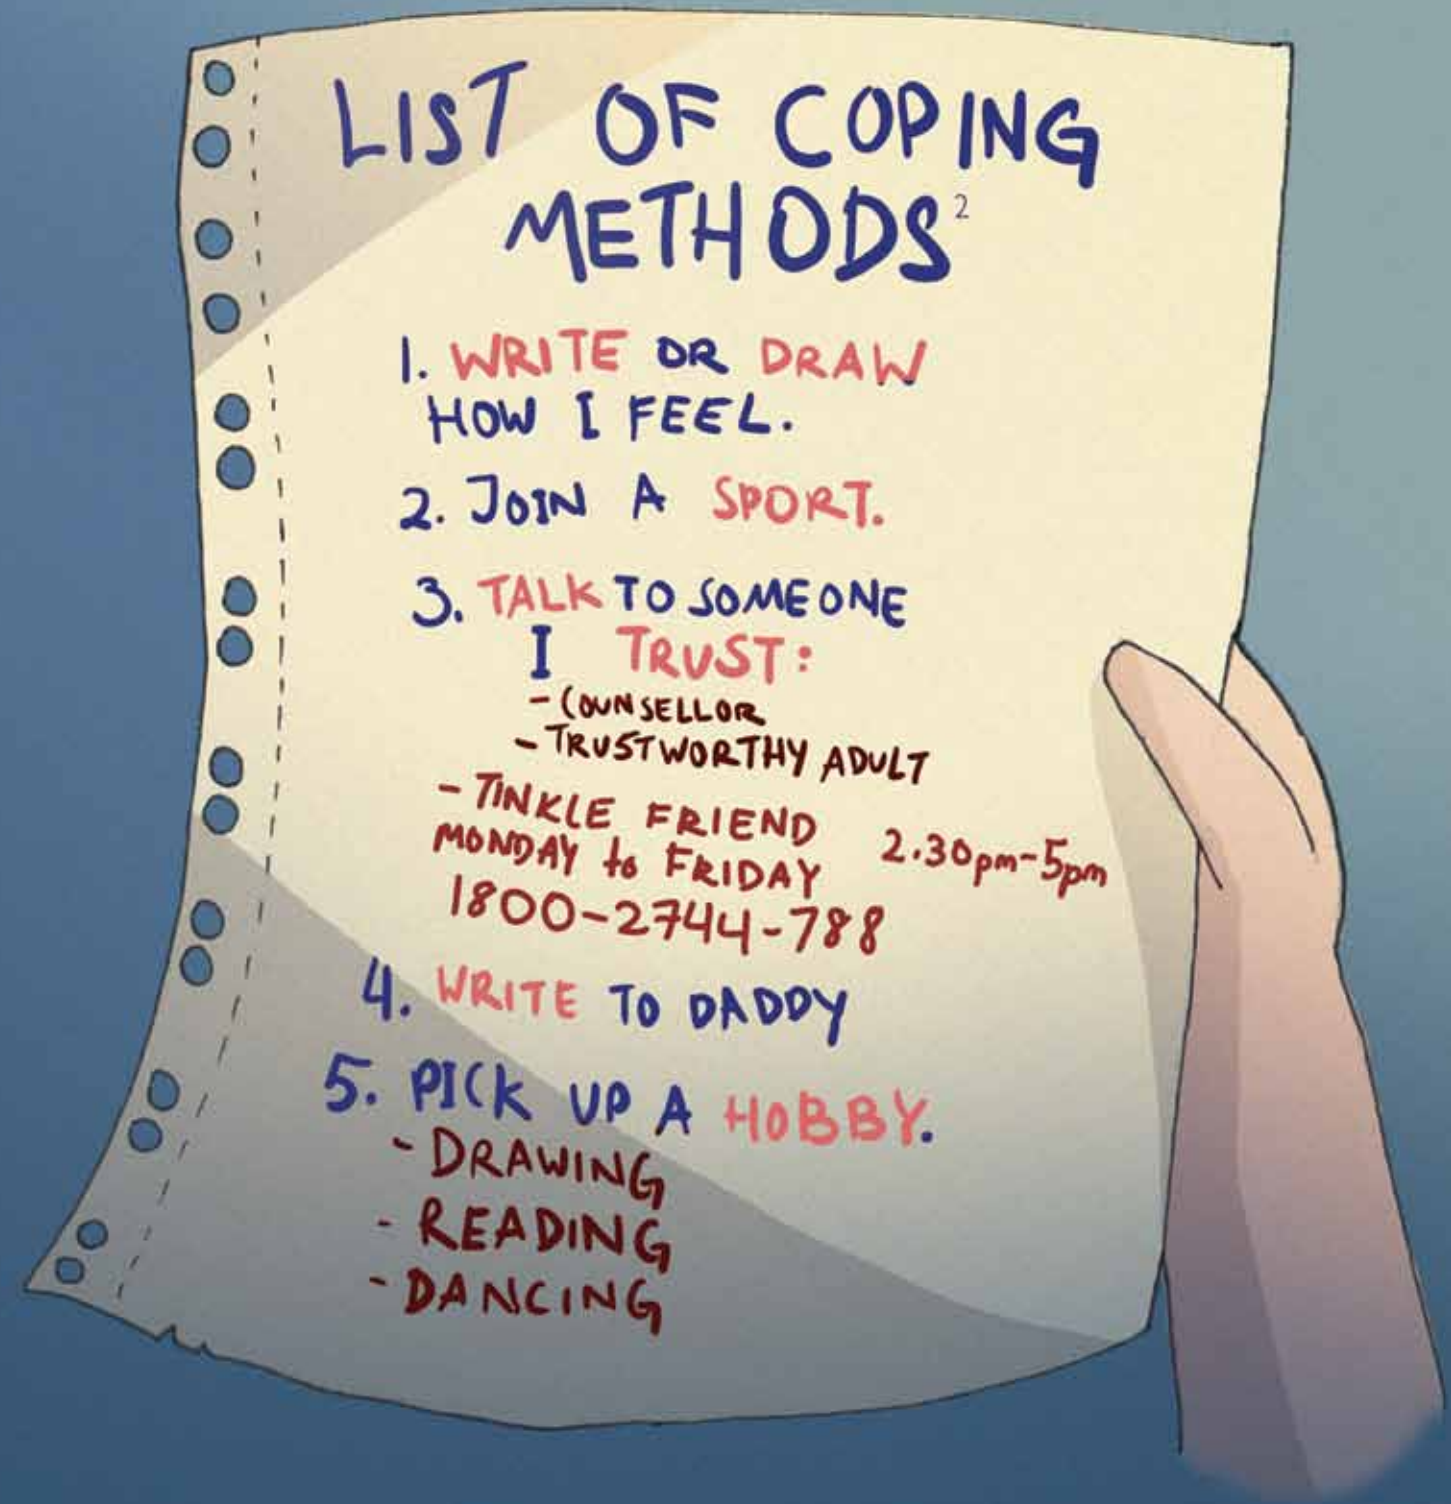 LIST OF COPING
METHODS²
1. WRITE OR DRAW
HOW I FEEL.
2. JOIN A SPORT.
3. TALK TO SOMEONE
I TRUST:
- COUNSELLOR
- TRUSTWORTHY ADULT
- TINKLE FRIEND
MONDAY to FRIDAY 2.30pm-5pm
1800-2744-788
4. WRITE TO DADDY
5. PICK UP A HOBBY.
- DRAWING
- READING
- DANCING